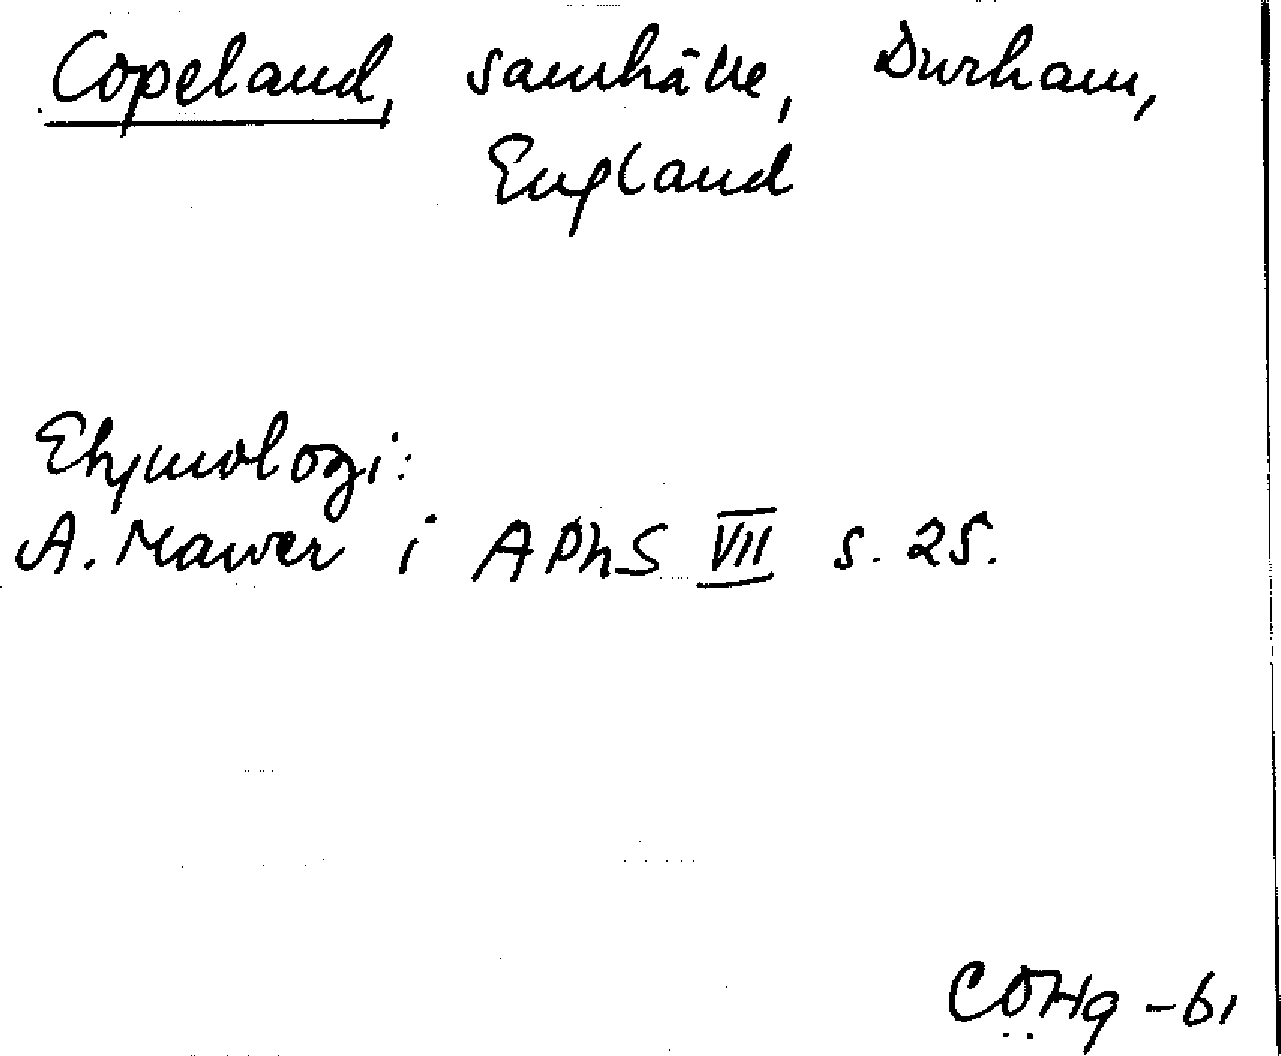 Copeland, samhälle, Durham,
England
Etymologi:
A. Mawer i APhS VII s. 25.
COHg -61